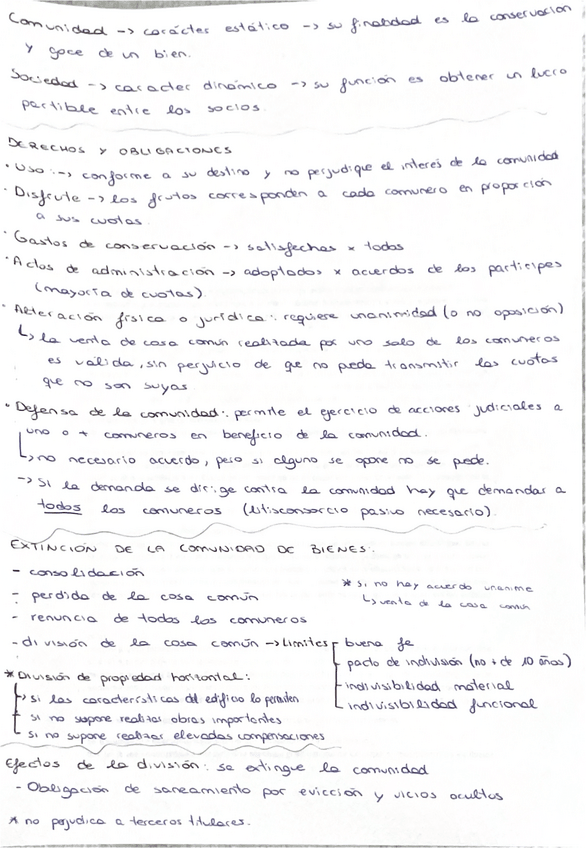 Comunidad -> carácter estático -> su finalidad es la conservación
y goce de un bien.
Sociedad -> caracter dinámico -> su función es obtener un lucro
partible entre los socios.
DERECHOS Y OBLIGACIONES
· Uso: -> conforme a su destino y no perjudique el interés de la comunidad
· Disfrute -> los frutos corresponden a cada comunero en proporción
a sus cuotas.
· Gastos de conservación -> satisfechas x todos
· Actos de administración -> adoptados x acuerdos de los partícipes
(mayoría de cuotas)
· Alteración física o jurídica: requiere unanimidad (o no oposición)
↳ la venta de casa común realitada por uno solo de los comuneros
es válida, sin perjuicio de que no pueda transmitir las cuotas
que no son suyas
· Defensa de la comunidad: permite el ejercicio de acciones judiciales a
uno o + comuneros en beneficio de la comunidad.
↳ no necesario acuerdo, pero si alguno se opone no se puede.
-> Si la demanda se dirige contra la comunidad hay que demandar a
todos los comuneros (litisconsorcio pasivo necesario).
EXTINCIÓN DE LA COMUNIDAD DE BIENES:
- consolidación
- perdida de la cosa común
- renuncia de todos los comuneros
* si no hay acuerdo unánime
↳ venta de la cosa común
- división de la cosa común -> Límites
buena fe
pacto de indivisión (no + de 10 años)
indivisibilidad material
indivisibilidad funcional
* División de propiedad horizontal:
si las características del edificio lo permiten
si no supone realitar obras importantes
si no supone realizar elevadas compensaciones
Efectos de la división: se extingue la comunidad
- Obligación de saneamiento por evicción y vicios ocultos
* no perjudica a terceros titulares.